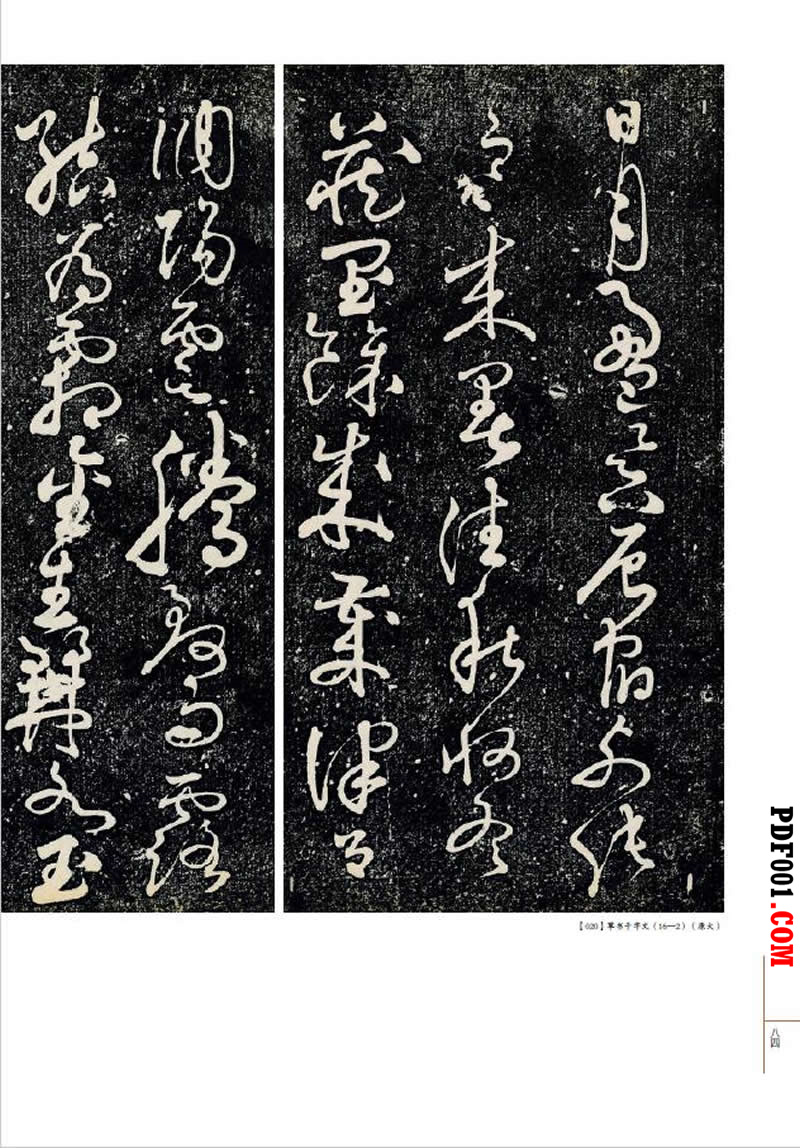 日月盈昃辰宿列張
寒來暑往秋收冬
藏閏餘成歲律呂
調陽雲騰致雨露
結為霜金生麗水玉
【020】草书千字文（16—2）（原大）
PDF001.COM
八四